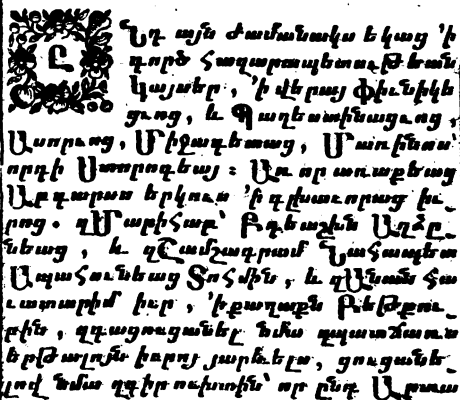 ԸՆդ այն ժամանակս եկաց ՚ի
գործ Հազարապետութեան
Կայսեր, ՚ի վերայ Փիւնիկե
ցւոց, և Պաղեստինացւոց,
Ասորւոց, Միջագետաց, Մարինոս՝
որդի Ստորոգեայ։ Առ որ առաքեաց
Աբգարոս երկուս ՚ի գլխաւորաց իւ-
րոց. զՄարիհաբ՝ Բդեաշխն Աղձը-
նեաց, և զՇամշագրամ Նահապետ
Ապահունեաց Տոհմին, և զԱնանն հա
ւատարիմ իւր, ՚ի քաղաքն Բեթքու-
բին, զգացուցանել նմա զպատճառս
երթալոյն իւրոյ յարևելս, ցուցանե-
լով նմա զգիր ուխտին՝ որ ընդ Արտա